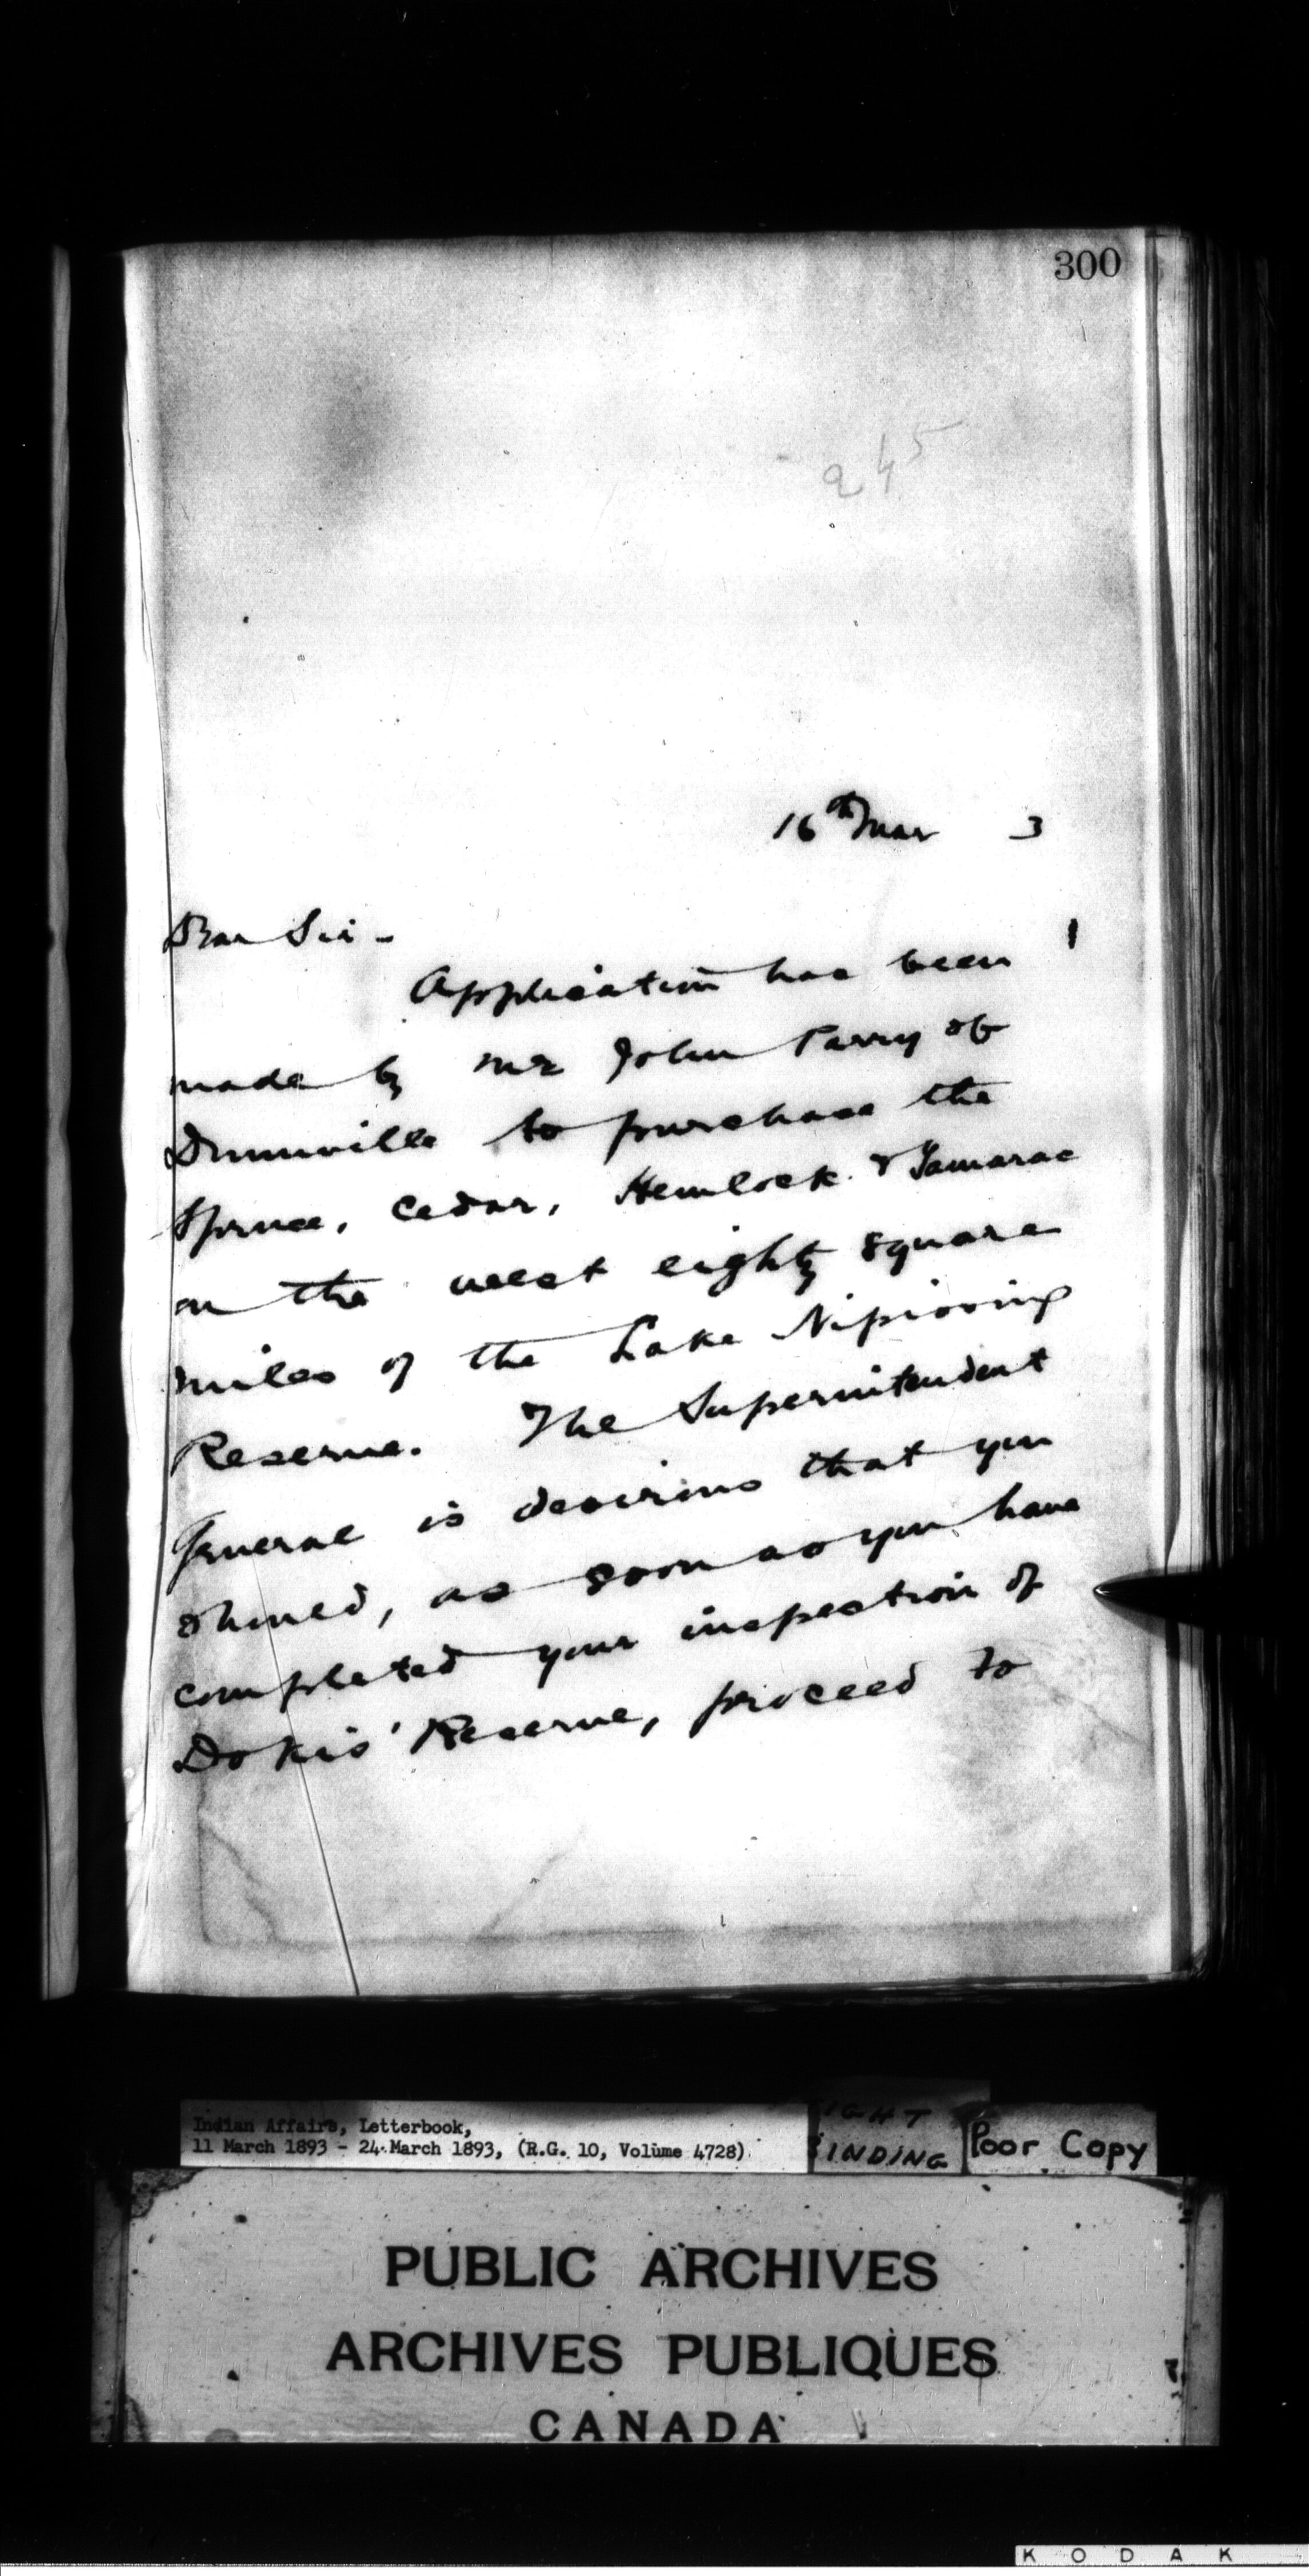 300
245
16th Mar 3
Dear Sir -
Application has been
made by Mr John Parry of
Dunnville to purchase the
Spruce, Cedar, Hemlock & Tamarac
on the west eighty square
miles of the Lake Nipissing
Reserve. The Superintendent
General is desirous that you
should, as soon as you have
completed your inspection of
Dokis' Reserve, proceed to
Indian Affairs, Letterbook,
11 March 1893 - 24 March 1893, (R.G. 10, Volume 4728)
IGHT
BINDING
Poor Copy
PUBLIC ARCHIVES
ARCHIVES PUBLIQUES
CANADA
KODAK